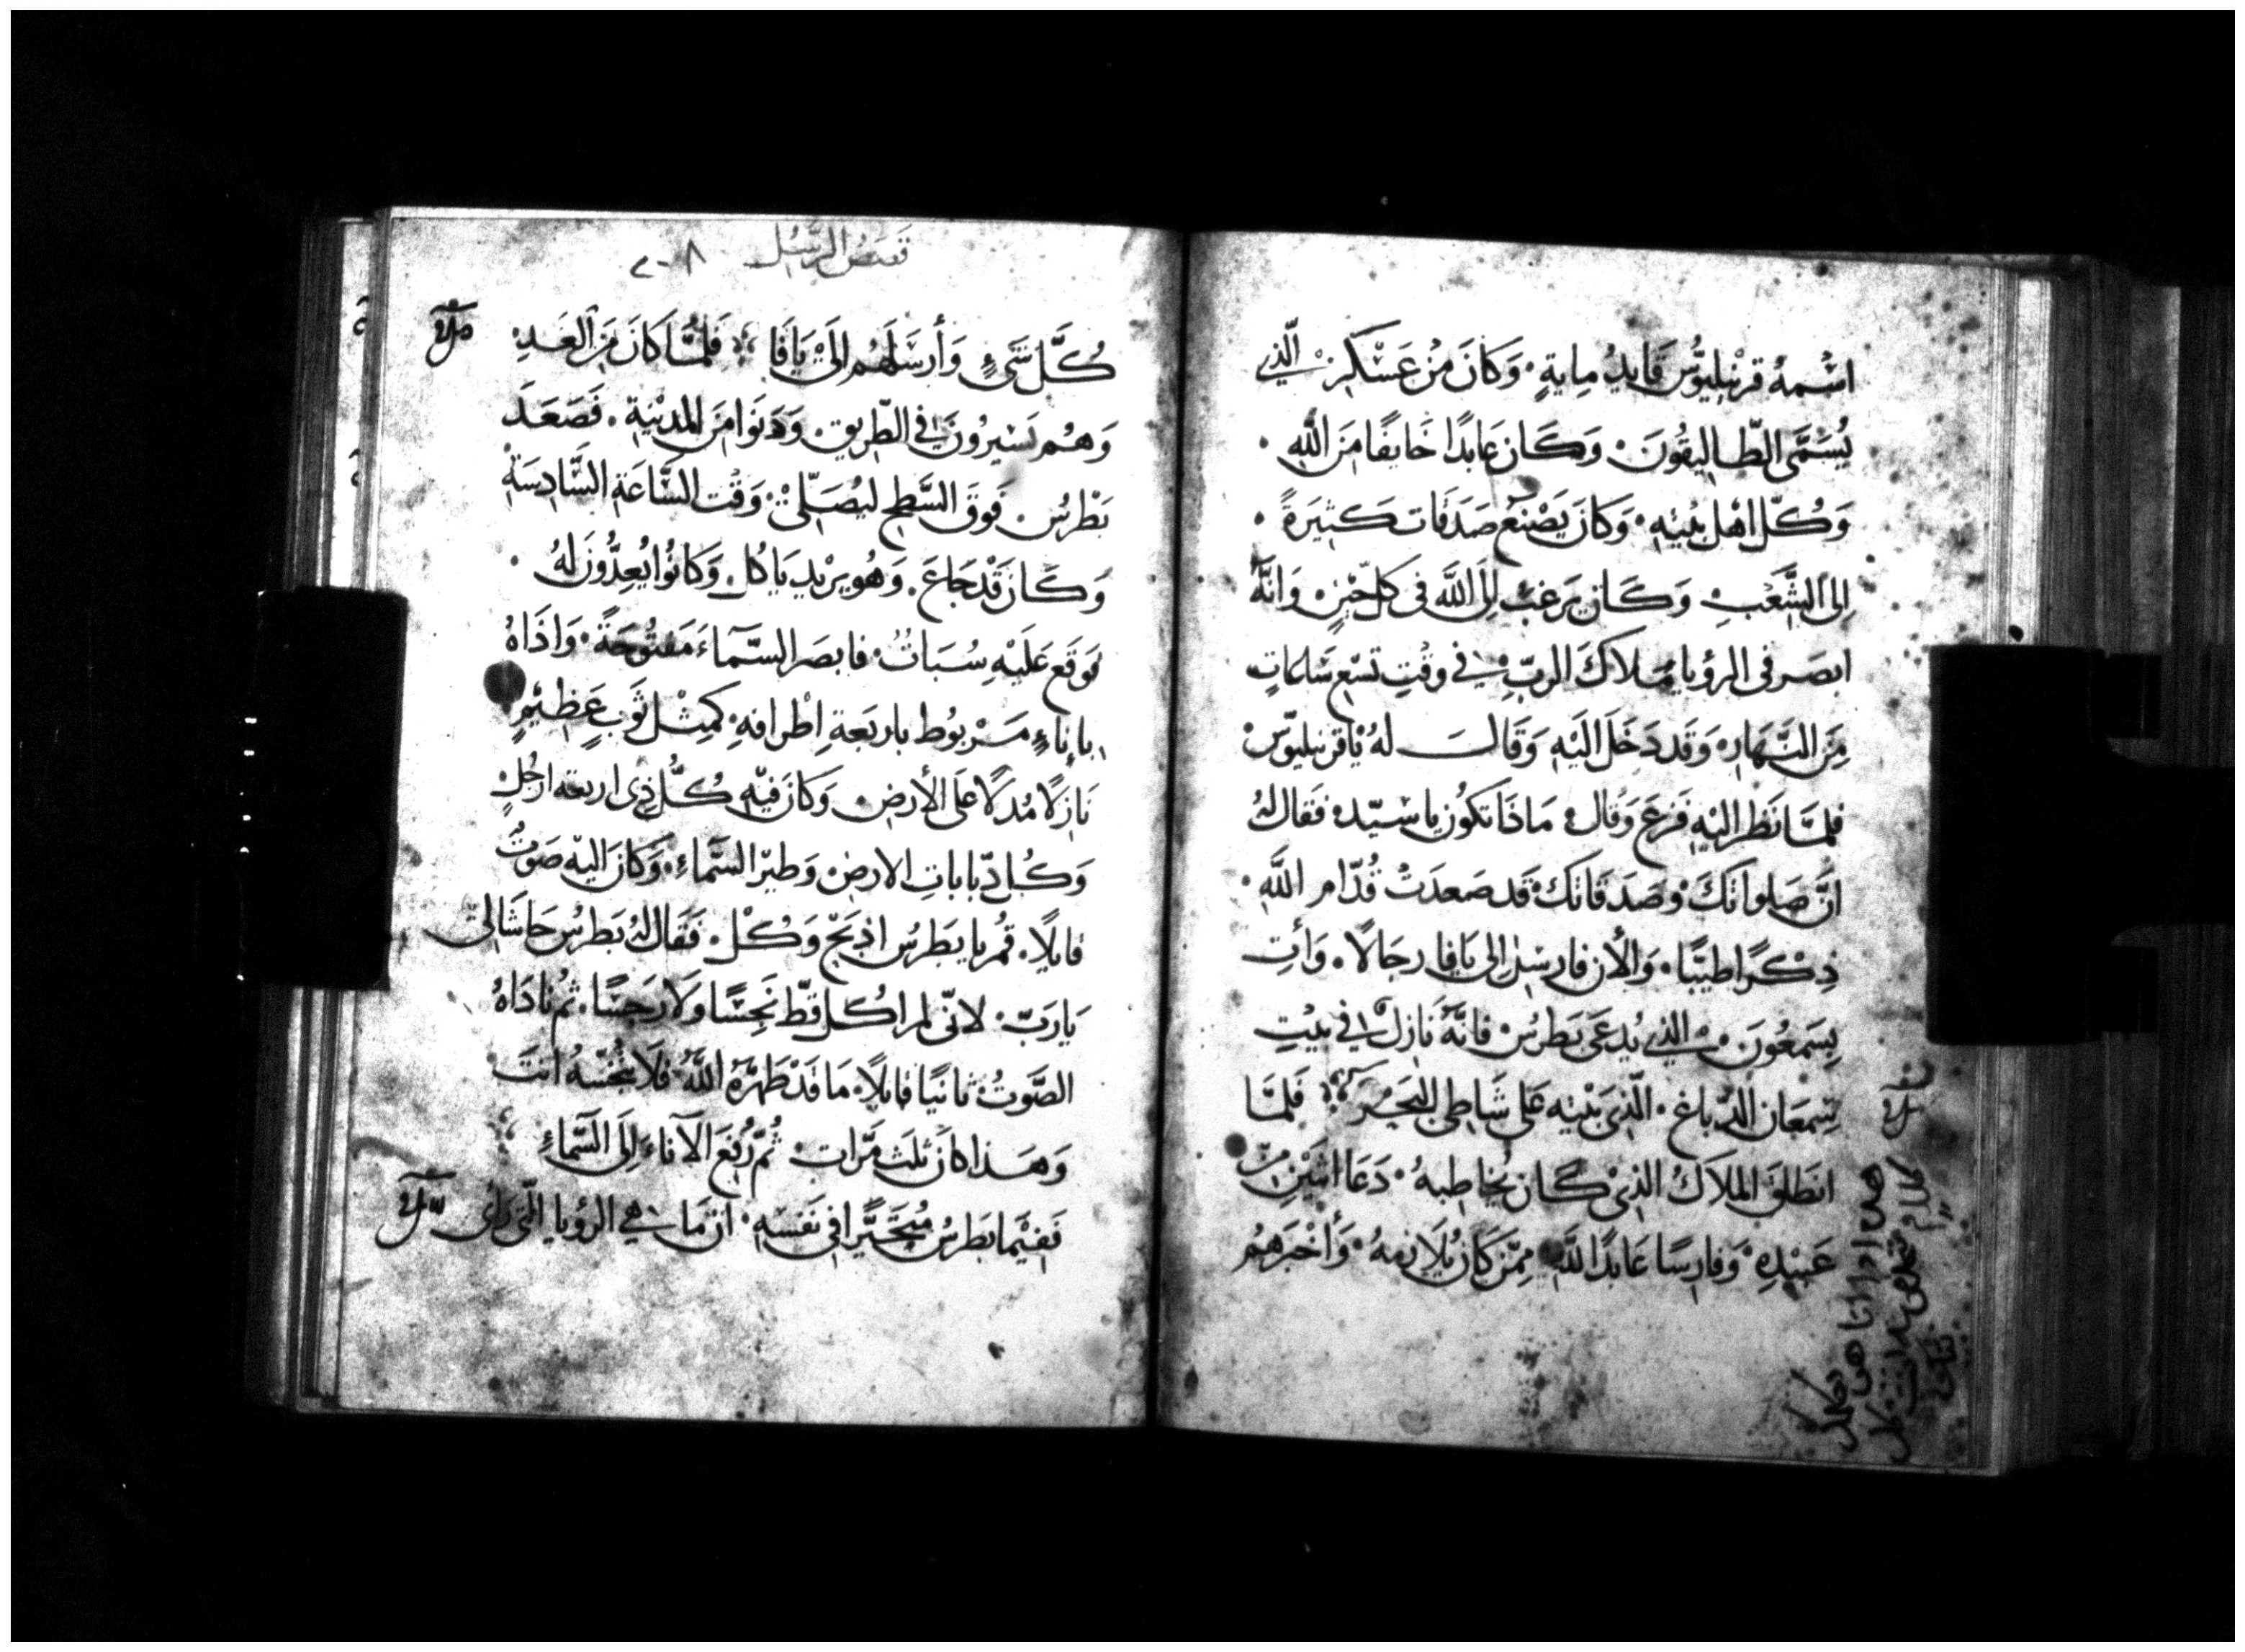 اسْمهُ قرْنيليوُّس قَايدُ مِايةٍ. وَكَانَ مِنْ عَسْكَرْ الَّذِي
يُسَمَّى الطَّاليقُونَ. وَكَان عَابدًا خَايفًا مِنَ اللَّهِ.
وَكُلّ اهْل بَيْتهِ. وَكَانَ يَصْنَعُ صَدَقَات كَثِيرَةً.
اِلى الشَّعْبِ وَكَان يَرغبُ اِلَى اللَّه فى كل حَيْنٍ وَانَّهُ
ابصَر فى الرؤيا مَلاكَ الربّ فِي وقْتِ تسْع سَاعَاتٍ
مِنَ النَّهَارِ وَقَد دَخَلَ اليْهِ وَقَالَ لهُ يْا قرنيليوّسْ
فلمَّا نَظر اليْهِ فَزعَ وَقال مَاذَا تكوُن يا سَيّدى فقال لهُ
انَّ صَلواتكَ وصَدقَاتكَ قَد صَعدَتْ قُدّام اللَّه.
ذِكْرًا طيبًا. وَالأن فارسِل الى يَافا رجَالًا. وَأتِ
بِسَمعُونَ الذِي يُدعَى بَطرُسْ فانَّهُ نَازلٌ فِي بيْتِ
سِمعَان الدَّباغ. الَّذِي بَيْته على شَاطى البَحْر فَلمَّا
انطَلقَ الملَاكُ الذِيْ كَان يُخاطبهُ. دَعَا اثنَيْنِ مِنْ
عَبيْدِهِ وَفارسًا عَابدًا للَّه ممِّنْ كَانَ يُلَازمهُ. وَأخْبَرهمُ
قصَصُ الرّسُل
كُلَّ شَىءٍ وَأرسَلَهُم الَىْ يَافَا فَلمَّا كَانَ مِنَ الغَدِ
وَهُم يَسْيرُونَ فِي الطّريق. وَدَنوَا مِنَ المدِيْنةِ. فَصَعَدَ
بَطْرسُ. فَوقَ السَّطح ليُصَلّىْ وَقْت السَّاعَةِ السَّادِسَةِ
وَكَان قَدْ جَاعَ. وَهُو يريْد يَاكُل. وَكَانُوا يُعِدُّونَ لَهُ.
فوَقَع عَليْه سُبَاتُ. فابصَر السَّمآءَ مَفتُوحَةً. وَاذَاهُ
باِناءٍ مَرْبوُط باربَعةِ اطْرافهِ. كمِثْل ثَوبٍ عَظيْمٍ
نَازِلًا مُدلًا عَلَى الأرضِ. وَكانَ فيْهِ كُلُّ ذِى اربعه ارجُلٍ
وَكُل دبّابات الارض وَطيْر السَّمآءِ. وَكانَ اليْه صَوتُ
قايلًا. قُم يا بَطرسُ اذبَحْ وَكُلْ. فَقَال لهُ بَطرسُ حَاشَا لىْ
يَاربّ. لانّى لم اكُل قطّ نَجِسًا وَلَا رَجسًا. ثم نادَاهُ
الصَّوتُ ثانيًا قايلًا. مَا قَدْ طَهّرهُ اللَّهُ فلَا تُنَجّسهُ انتَ
وَهَذا كانَ ثلَث مَرّات. ثُمّ رُفِعَ الآناء اِلَى السَّماءِ
فَفيْما بَطرسُ مُتَحَيّرًا فى نَفسِهِ. انّ مَا هِي الرؤيا الّتى رَاى